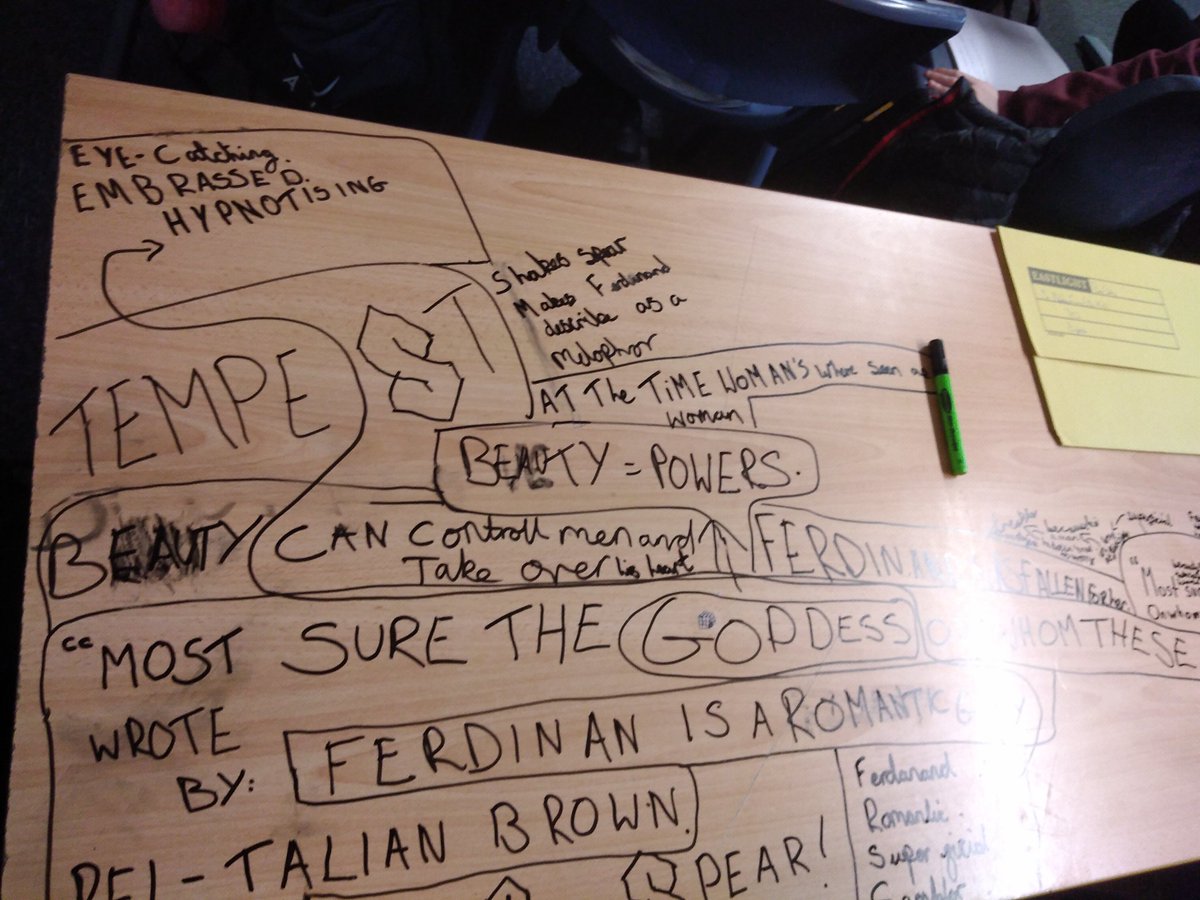 EYE-Catching.
EMBRASSED.
HYPNOTISING
TEMPEST
Shakes spear
Makes Ferdanand
describe as a
Metophor
AT The TiME WOMAN'S where seen as
woman
BEAUTY = POWERS.
BEAUTY CAN Controll men and
Take over his heart
FERDINAND FALLEN for her
"MOST SURE THE GODDESS ON WHOM THESE
"Most sure
On whom
WROTE
BY:
FERDINAN IS A ROMANTIC GUY
DEJ-TALIAN BROWN.
PEAR!
Ferdanand
Romantic
Super ficial
EASTLIGHT